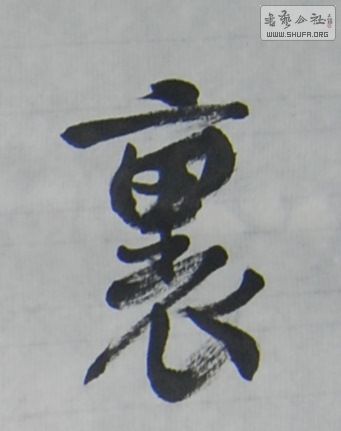 書藝公社
WWW.SHUFA.ORG
裏